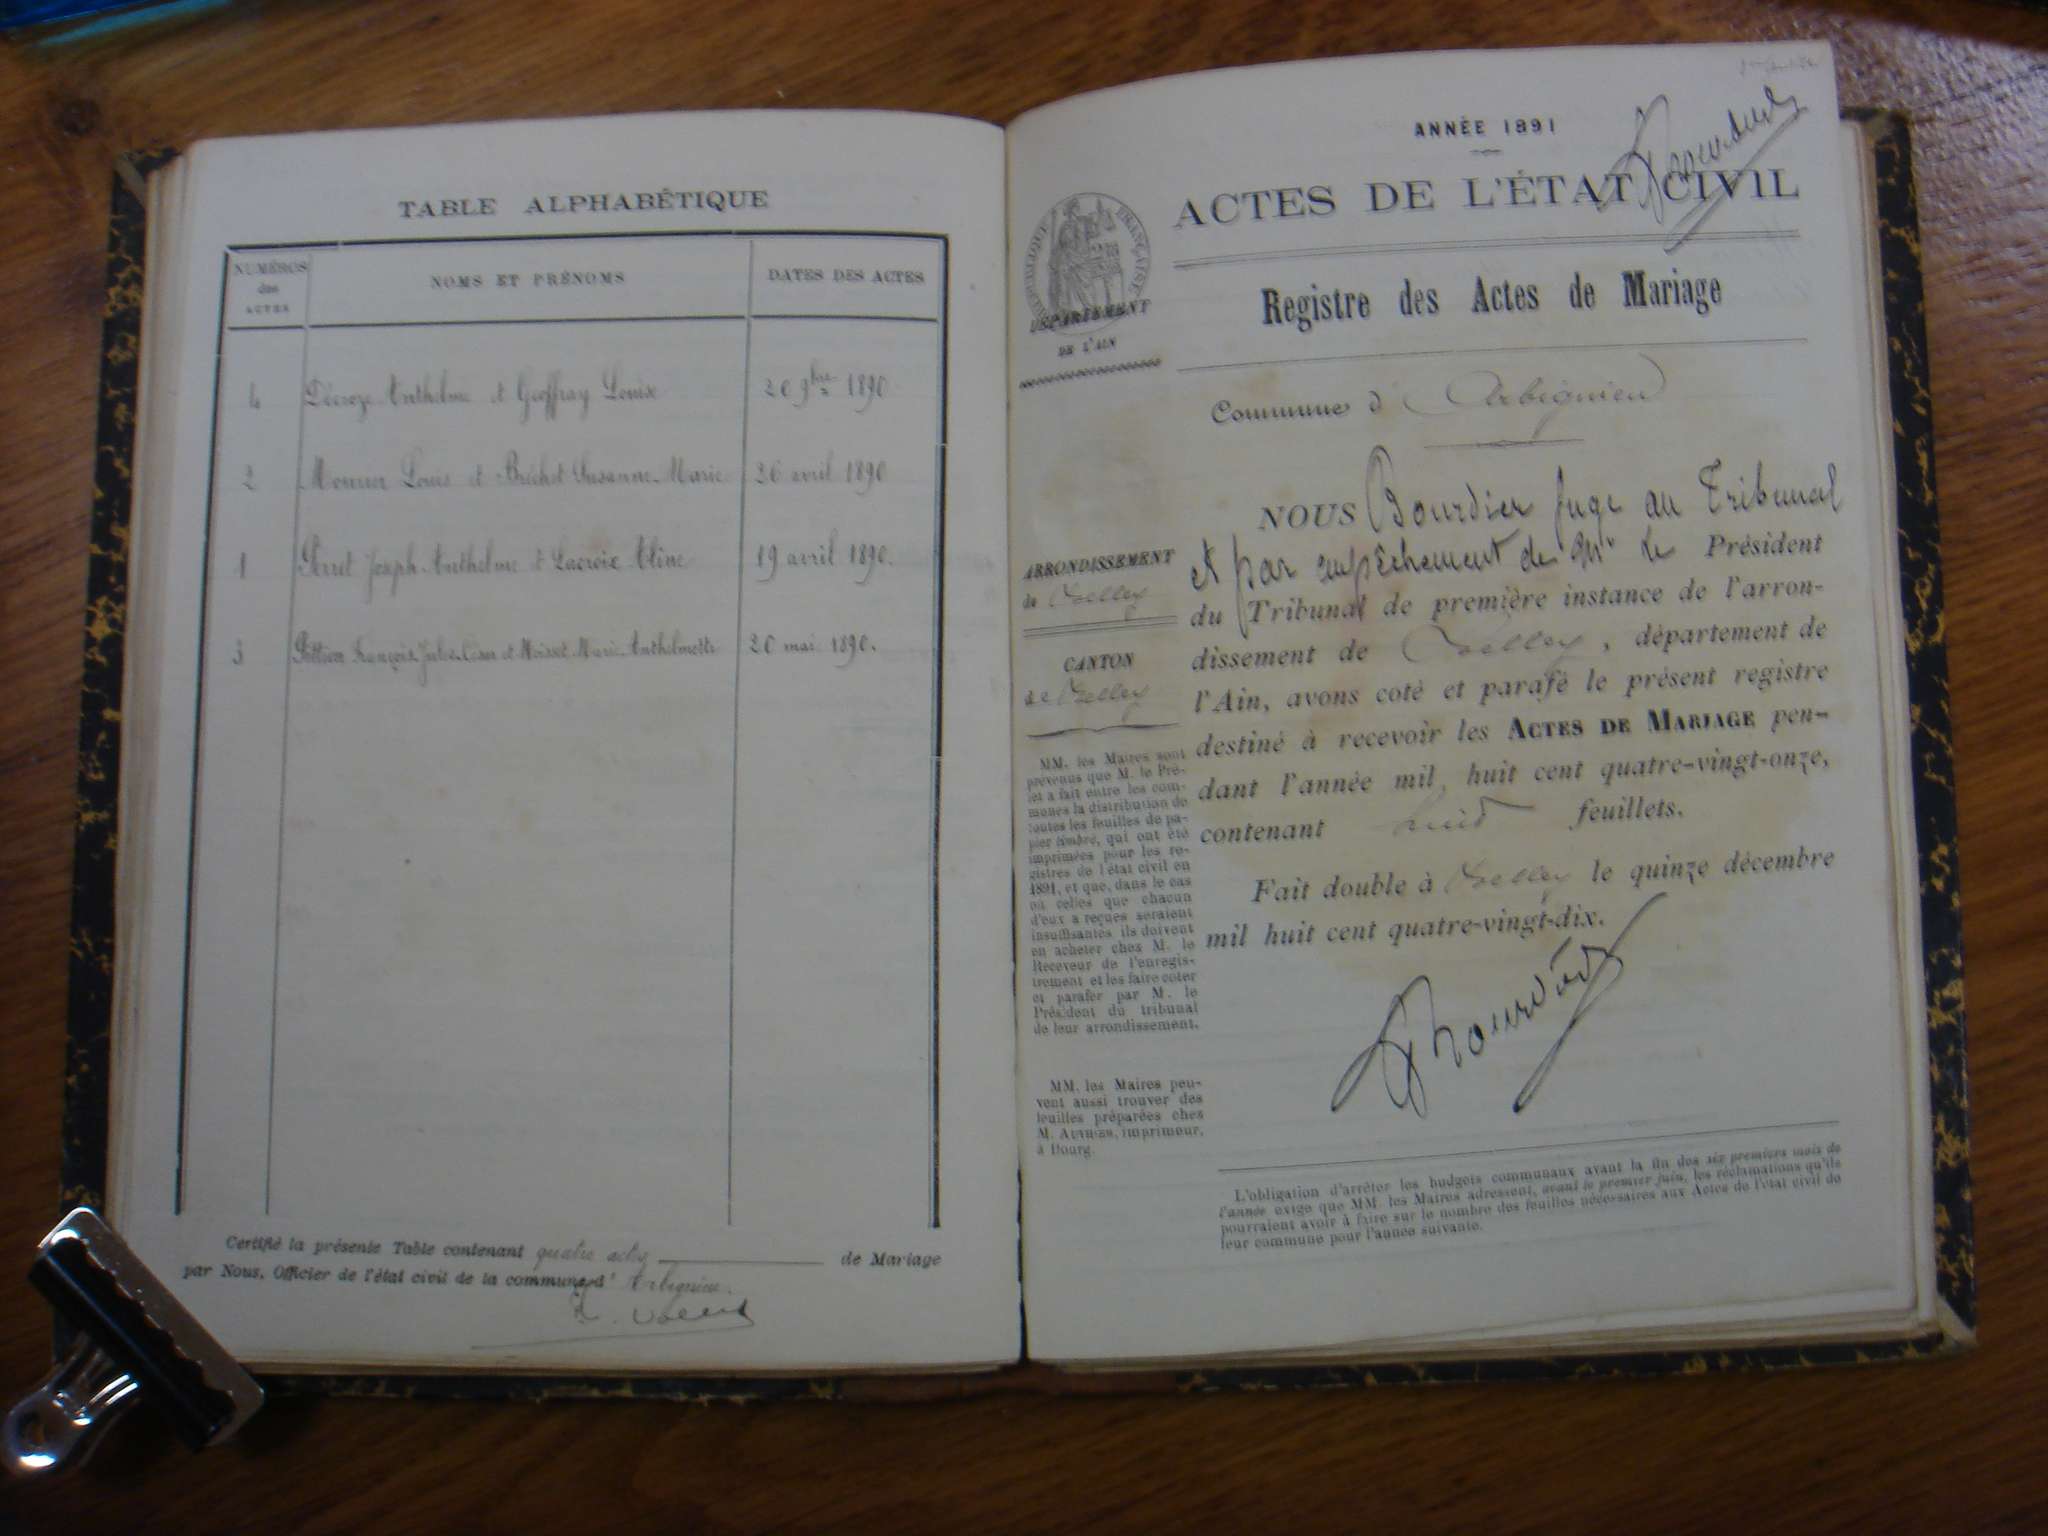 TABLE ALPHABÉTIQUE
NUMÉROS des ACTES
NOMS ET PRÉNOMS
DATES DES ACTES
4 Décroze Anthelme et Geoffray Louise 20 9bre 1890
2 Mounier Louis et Bréchet Susanne Marie 26 avril 1890
1 Perret Joseph Anthelme et Lacroix Aline 19 avril 1890.
3 François Jules César et Moisset Marie Anthelmette 20 mai 1890.
Certifié la présente Table contenant quatre actes de Mariage
par Nous, Officier de l'état civil de la commune d' Arbignieu.
ANNÉE 1891
ACTES DE L'ÉTAT CIVIL
RÉPUBLIQUE FRANÇAISE
DÉPARTEMENT
DE L'AIN
Registre des Actes de Mariage
Commune d' Arbignieu
ARRONDISSEMENT
de Belley
CANTON
de Belley
MM. les Maires sont
prévenus que M. le Pré-
fet a fait entre les com-
munes la distribution de
toutes les feuilles de pa-
pier timbre, qui ont été
imprimées pour les re-
gistres de l'état civil en
1891, et que, dans le cas
où celles que chacun
d'eux a reçues seraient
insuffisantes ils doivent
en acheter chez M. le
Receveur de l'enregis-
trement et les faire coter
et parafer par M. le
Président du tribunal
de leur arrondissement.
MM. les Maires peu-
vent aussi trouver des
feuilles préparées chez
M. AUTHIER, imprimeur,
à Bourg.
NOUS Bourdier Juge au Tribunal
et par empêchement de Mr le Président
du Tribunal de première instance de l'arron-
dissement de Belley, département de
l'Ain, avons coté et parafé le présent registre
destiné à recevoir les ACTES DE MARIAGE pen-
dant l'année mil huit cent quatre-vingt-onze,
contenant huit feuillets.
Fait double à Belley le quinze décembre
mil huit cent quatre-vingt-dix.
Bourdier
L'obligation d'arrêter les budgets communaux avant la fin des six premiers mois de
l'année exige que MM. les Maires adressent, avant le premier juin, les réclamations qu'ils
pourraient avoir à faire sur le nombre des feuilles nécessaires aux Actes de l'état civil de
leur commune pour l'année suivante.